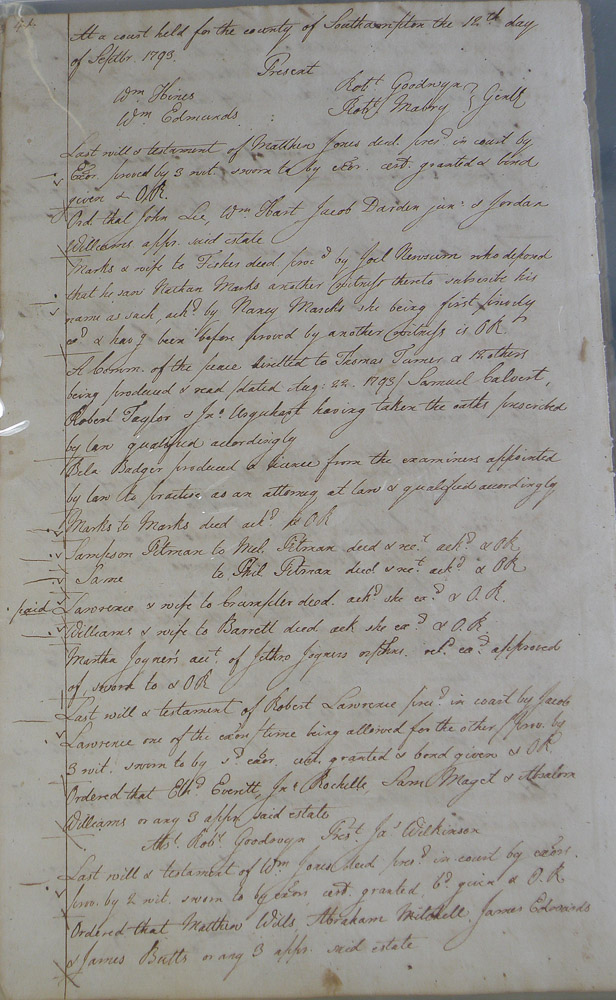 At a court held for the county of Southampton the 12th day
of Septbr. 1793.
Present
Wm Hines Robt Goodwyn
Wm Edmunds Robt Mabry } Gentl
Last will & testament of Matthew Jones decd. presd in court by
Exor. proved by 3 wit. sworn to by exor. cert. granted & bond
given & OR.
Ord. that John Lee, Wm Hart Jacob Darden junr & Jordan
Williams appr. said estate
Marks & wife to Fisher deed provd by Joel Newsum who depond
that he saw Nathan Marks another Witness thereto subscribe his
name as such, ackd by Nancy Marks she being first privily
exd & havg been before proved by another Witness is OR
A Comm. of the peace directed to Thomas Turner & others
being produced & read /dated Aug: 22. 1793/ Samuel Calvert,
Robert Taylor & Jno Urquhart having taken the oaths prescribed
by law qualified accordingly
Bela Badger produced a licence from the examiners appointed
by law to practise as an attorney at law & qualified accordingly
Marks to Marks deed ackd & OR
Sampson Pitman to Mel. Pitman deed & rect ackd & OR
Same to Phil Pitman deed & rect ackd & OR
paid Lawrence & wife to Crumpler deed. ackd she exd & O.R.
Williams & wife to Barrett deed ack she exd & O.R.
Martha Joyner's acct. of Jethro Joyners orphns. retd exd approved
of, sworn to & OR
Last will & testament of Robert Lawrence presd in court by Jacob
Lawrence one of the exors /time being allowed for the other/ prov. by
3 wit. sworn to by sd exor. cert. granted & bond given & OR.
Ordered that Ethd Everitt, Jno Rochelle, Sam Maget & Absalom
Williams or any 3 appr. said estate
Abst. Robt Goodwyn Prest Jas Wilkinson
Last will & testament of Wm Jones decd presd in court by exors.
prov. by 2 wit. sworn to by exors cert granted bd given & O.R.
Ordered that Matthew Wills, Abraham Mitchell James Edwards
& James Butts or any 3 appr. said estate